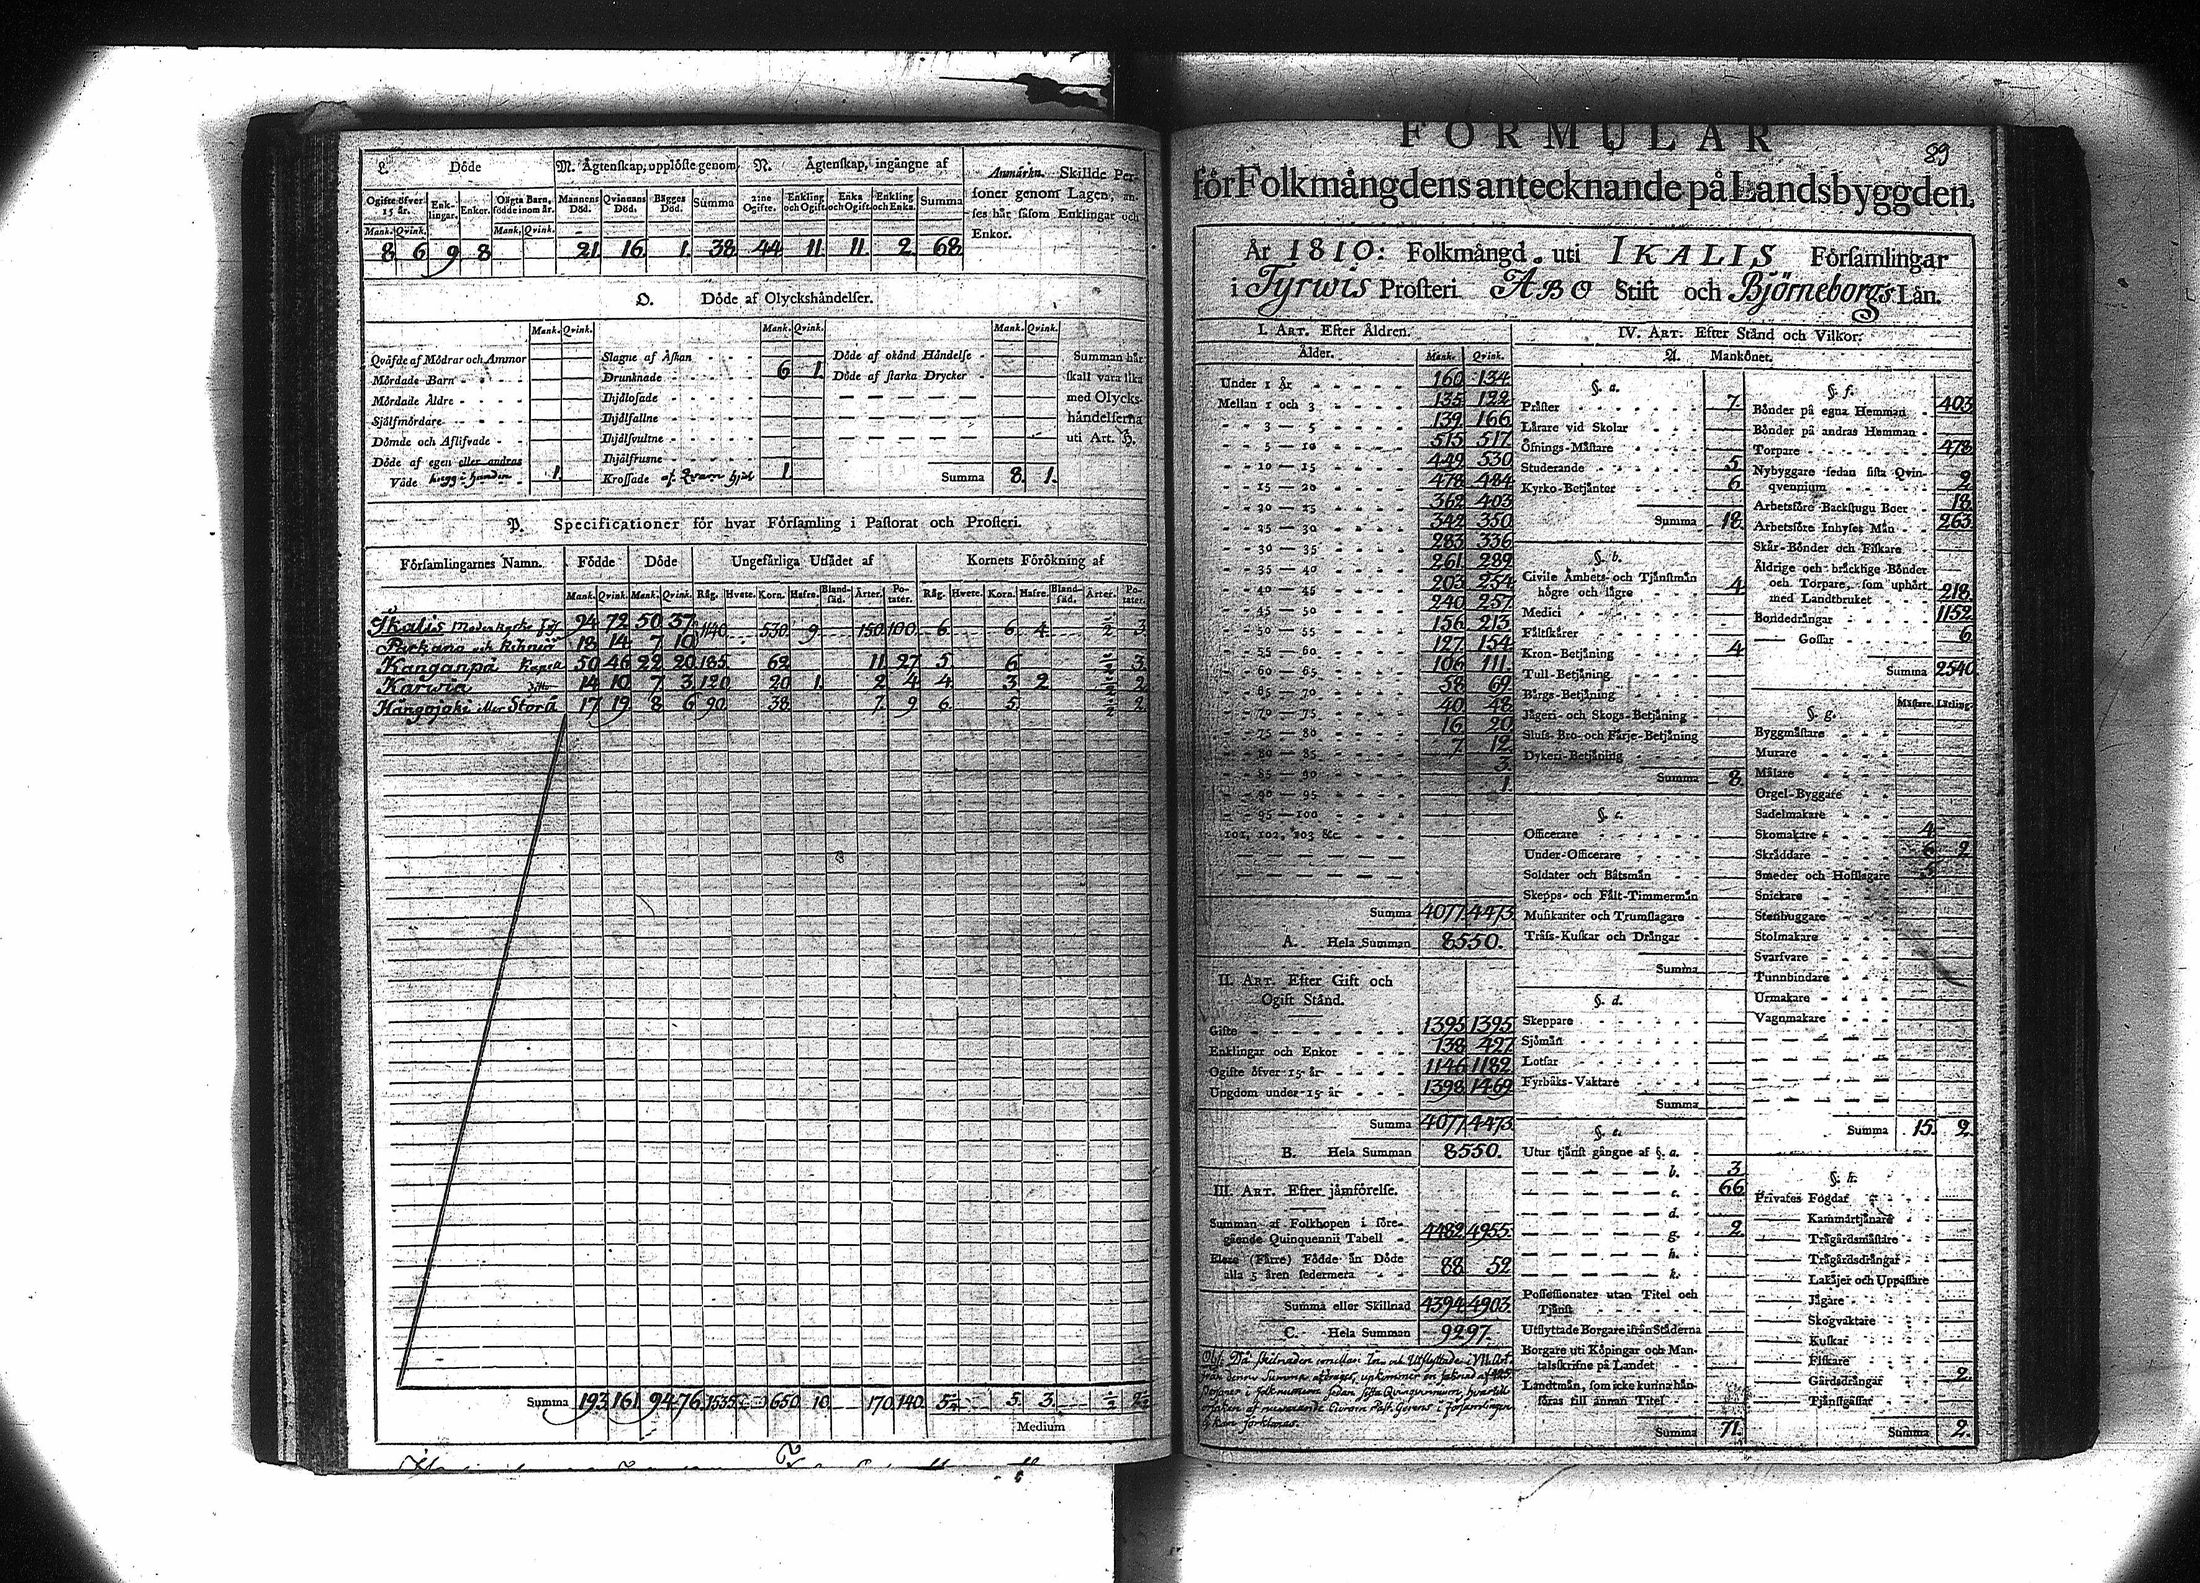 L. Döde M. Ägtenskap, upplöste genom N. Ägtenskap, ingångne af Anmärkn. Skillde Per-
soner genom Lagen, an-
ses här såsom Enklingar och
Enkor.
Ogifte öfver 15 år. Enk-lingar. Enkor. Oägta Barn, födde inom år. Mannens Död. Qvinnans Död. Bägges Död. Summa 2:ne Ogifte. Enkling och Ogift. Enka och Ogift. Enkling och Enka. Summa
Mank. Qvink. Mank. Qvink.
8 6 9 8 21. 16. 1. 38. 44 11. 11. 2. 68
O. Döde af Olyckshändelser.
Mank. Qvink. Mank. Qvink. Mank. Qvink.
Qväfde af Mödrar och Ammor Slagne af Åskan Döde af okänd Händelse Summan här
Mördade Barn Drunknade 6 1. Döde af starka Drycker skall vara lika
Mördade Äldre Ihjälosade med Olycks-
Självmördare Ihjälfallne händelserna
Dömde och Aflifvade Ihjälsvultne uti Art. H.
Döde af egen eller andras Ihjälfrusne
Våde hugg i handen 1. Krossade af Qvarn hjul 1. Summa 8. 1.
P. Specificationer för hvar Församling i Pastorat och Prosteri.
Församlingarnes Namn. Födde Döde Ungefärliga Utsädet af Kornets Förökning af
Mank. Qvink. Mank. Qvink. Råg. Hvete. Korn. Hafre. Bland-säd. Ärter. Po-tater. Råg. Hvete. Korn. Hafre. Bland-säd. Ärter. Po-tater.
Ikalis Moderkyrko 94 72 50 37 1140 530 9 150 100 6 6 4 1/2 3
Parkano och Kihniö 18 14 7 10
Kanganpä Kapell 50 46 22 20 185 62 11 27 5 6 1/2 3
Karwia ditto 14 10 7 3 120 20 1. 2 4 4 3 2 1/2 2
Hångojoki eller Storå 17 19 8 6 90 38 7 9 6 5 1/2 2
Summa 193 161 94 76 1535 650 10 170 140 5 1/4 5 3 1/2 2 1/2
Medium
FORMULAR
89
för Folkmängdens antecknande på Landsbyggden.
År 1810: Folkmängd uti IKALIS Församlingar
i Tyrwis Prosteri ABO Stift och Björneborgs Län.
I. ART. Efter Åldren.
Ålder. Mank. Qvink.
Under 1 år 160 134
Mellan 1 och 3 135 122
3 — 5 139 166
5 — 10 515 517
10 — 15 449 530
15 — 20 478 484
20 — 25 362 403
25 — 30 342 350
30 — 35 283 336
35 — 40 261 289
40 — 45 203 254
45 — 50 240 257
50 — 55 156 213
55 — 60 127 154
60 — 65 106 111
65 — 70 58 69
70 — 75 40 48
75 — 80 16 20
80 — 85 7 12
85 — 90 3.
90 — 95 1.
95 — 100
101, 102, 103 &c.
Summa 4077 4473
A. Hela Summan 8550.
II. ART. Efter Gift och
Ogift Stånd.
Gifte 1395 1395
Enklingar och Enkor 138 427
Ogifte öfver 15 år 1146 1182
Ungdom under 15 år 1398 1469
Summa 4077 4473
B. Hela Summan 8550.
III. ART. Efter jämförelse.
Summan af Folkhopen i före-
gående Quinquennii Tabell 4482 4955
Flere (Färre) Födde än Döde
alla 5 åren sedermera 88 52
Summa eller Skillnad 4394 4903
C. Hela Summan 9297.
IV. ART. Efter Stånd och Vilkor.
A. Mankönet.
§. a.
Präster 7
Lärare vid Skolar
Öfnings-Mästare
Studerande 5
Kyrko-Betjänter 6
Summa 18.
§. b.
Civile Ämbets- och Tjänstmän
högre och lägre 4
Medici
Fältskärer
Kron-Betjäning 4
Tull-Betjäning
Bärgs-Betjäning
Jägeri- och Skogs-Betjäning
Sluss-Bro- och Färje-Betjäning
Dykeri-Betjäning
Summa 8.
§. c.
Officerare
Under-Officerare
Soldater och Båtsmän
Skepps- och Fält-Timmermän
Musikanter och Trumslagare
Träss-Kuskar och Drängar
Summa
§. d.
Skeppare
Sjömän
Lotsar
Fyrbåks-Vaktare
Summa
§. e.
Utur tjänst gångne af §. a.
b. 3
c. 66
d.
g. 2.
h.
k.
Possessionater utan Titel och
Tjänst
Utflyttade Borgare ifrån Städerna
Borgare uti Köpingar och Man-
talsskrifne på Landet
Landtmän, som icke kunna hän-
föras till annan Titel
Summa 71.
§. f.
Bönder på egna Hemman 403
Bönder på andras Hemman
Torpare 478
Nybyggare sedan sista Qvin-
qvennium 2
Arbetsföre Backstugu Boer 18
Arbetsföre Inhyses Män 263
Skär-Bönder och Fiskare
Åldrige och bräcklige Bönder
och Torpare, som uphört
med Landtbruket 218
Bondedrängar 1152
Gossar 6
Summa 2540
Mästare. Lärling.
§. g.
Byggmästare
Murare
Målare
Orgel-Byggare
Sadelmakare
Skomakare 4
Skräddare 6 2
Smeder och Hofslagare 5
Snickare
Stenhuggare
Stolmakare
Svarfvare
Tunnbindare
Urmakare
Vagnmakare
Summa 15. 2.
§. h.
Privates Fogdar
Kammartjänare
Trägårdsmästare
Trägårdsdrängar
Lakäjer och Uppassare
Jägare
Skogvaktare
Kuskar
Fiskare
Gårdsdrängar 2
Tjänstgossar
Summa 2.